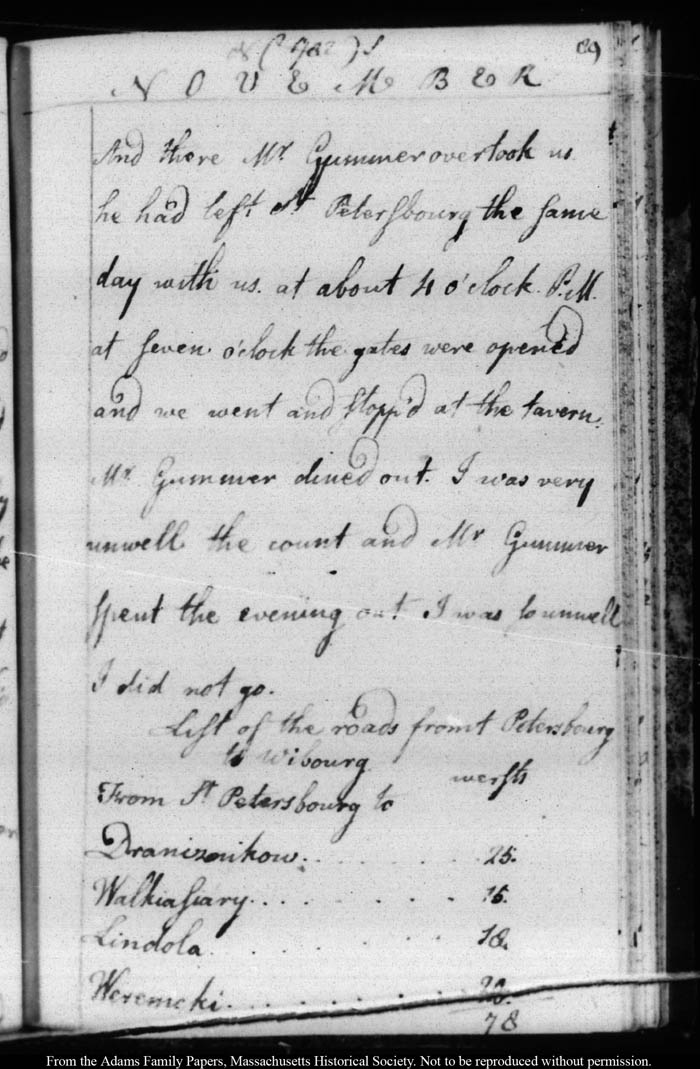 (1782) 89
NOVEMBER
And there Mr Gummer overtook us
he had left St Petersbourg the same
day with us. at about 4 o'clock P.M.
at seven o'clock the gates were opened
and we went and stopp'd at the tavern.
Mr Gummer dined out. I was very
unwell the count and Mr Gummer
spent the evening out I was so unwell
I did not go.
List of the roads from t Petersbourg
to Wibourg
wersts
From St Petersbourg to
Draniznikow. . . . . . . 25.
Walkiasiary. . . . . . . 15.
Lindola. . . . . . 18.
Weremcki. . . . . . . 20.
78
From the Adams Family Papers, Massachusetts Historical Society. Not to be reproduced without permission.